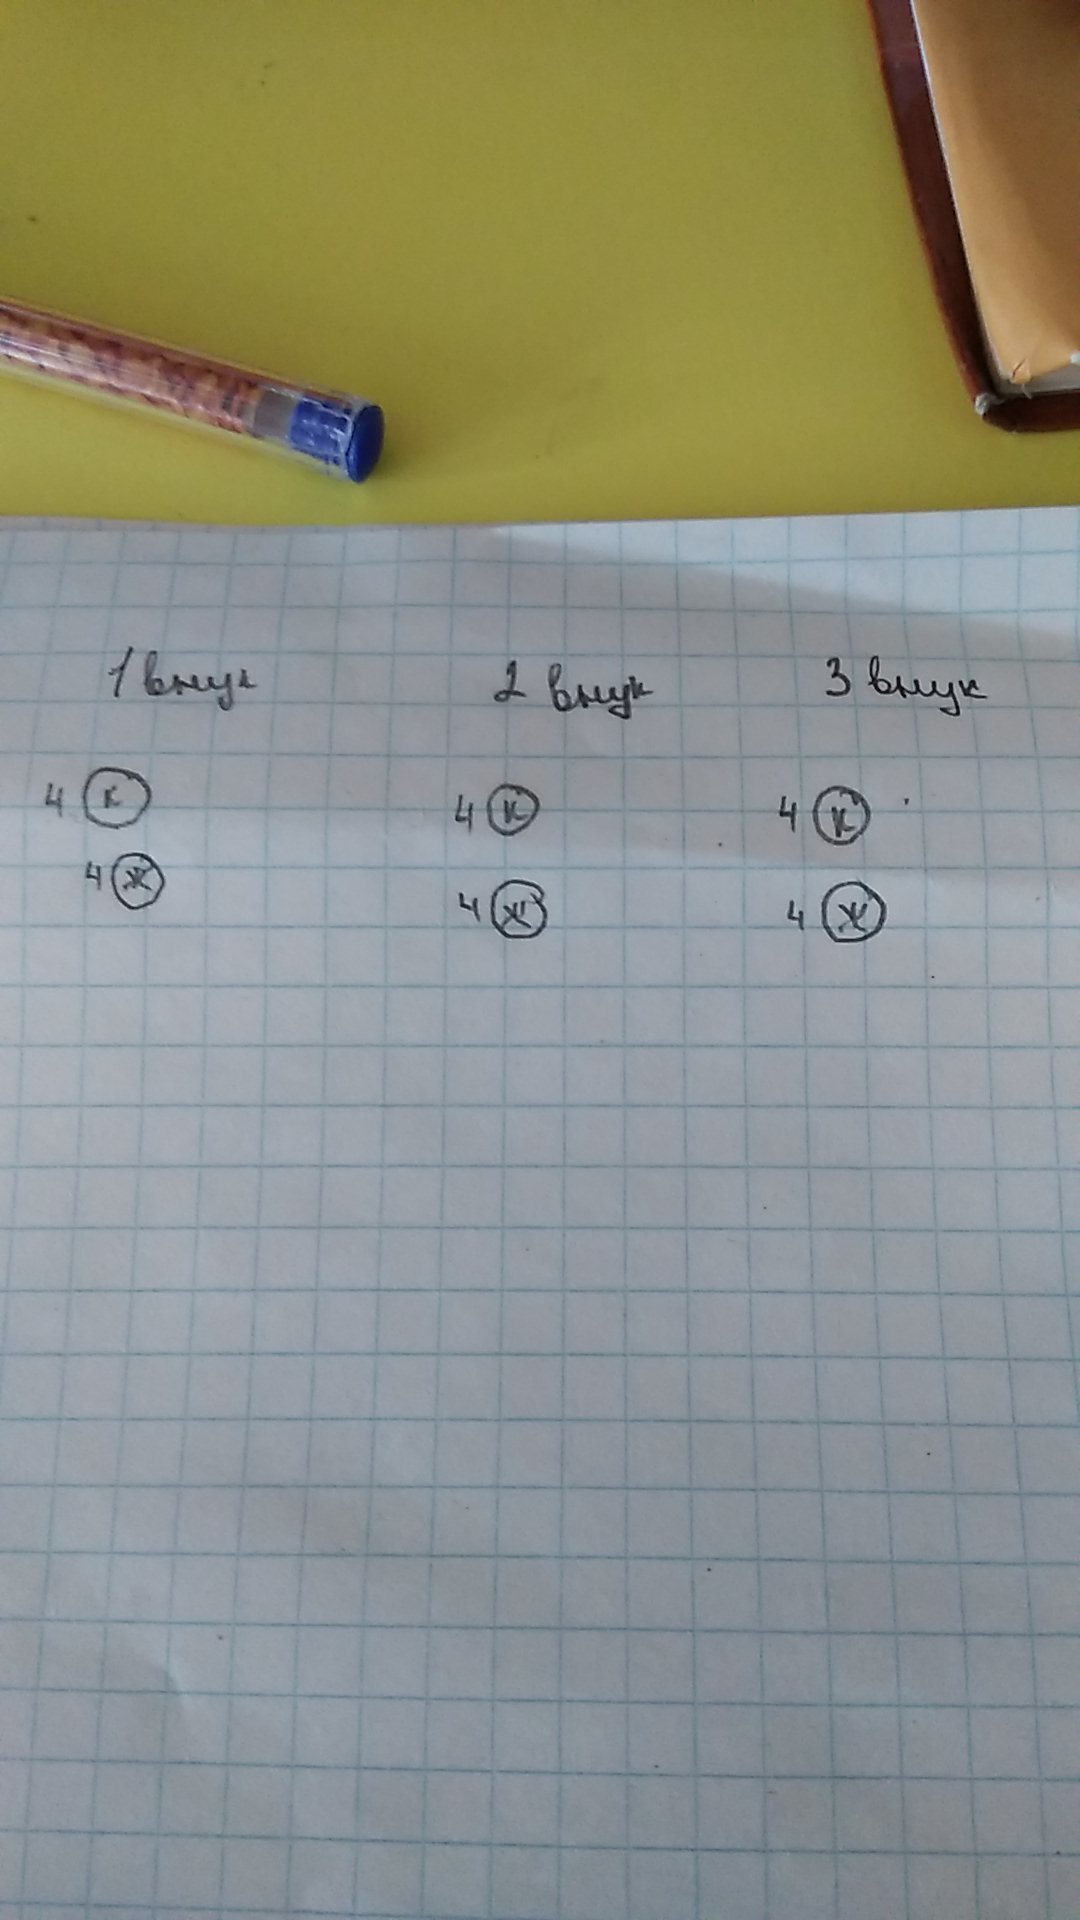 1 внук 2 внук 3 внук
4 К 4 К 4 К
4 Ж 4 Ж 4 Ж